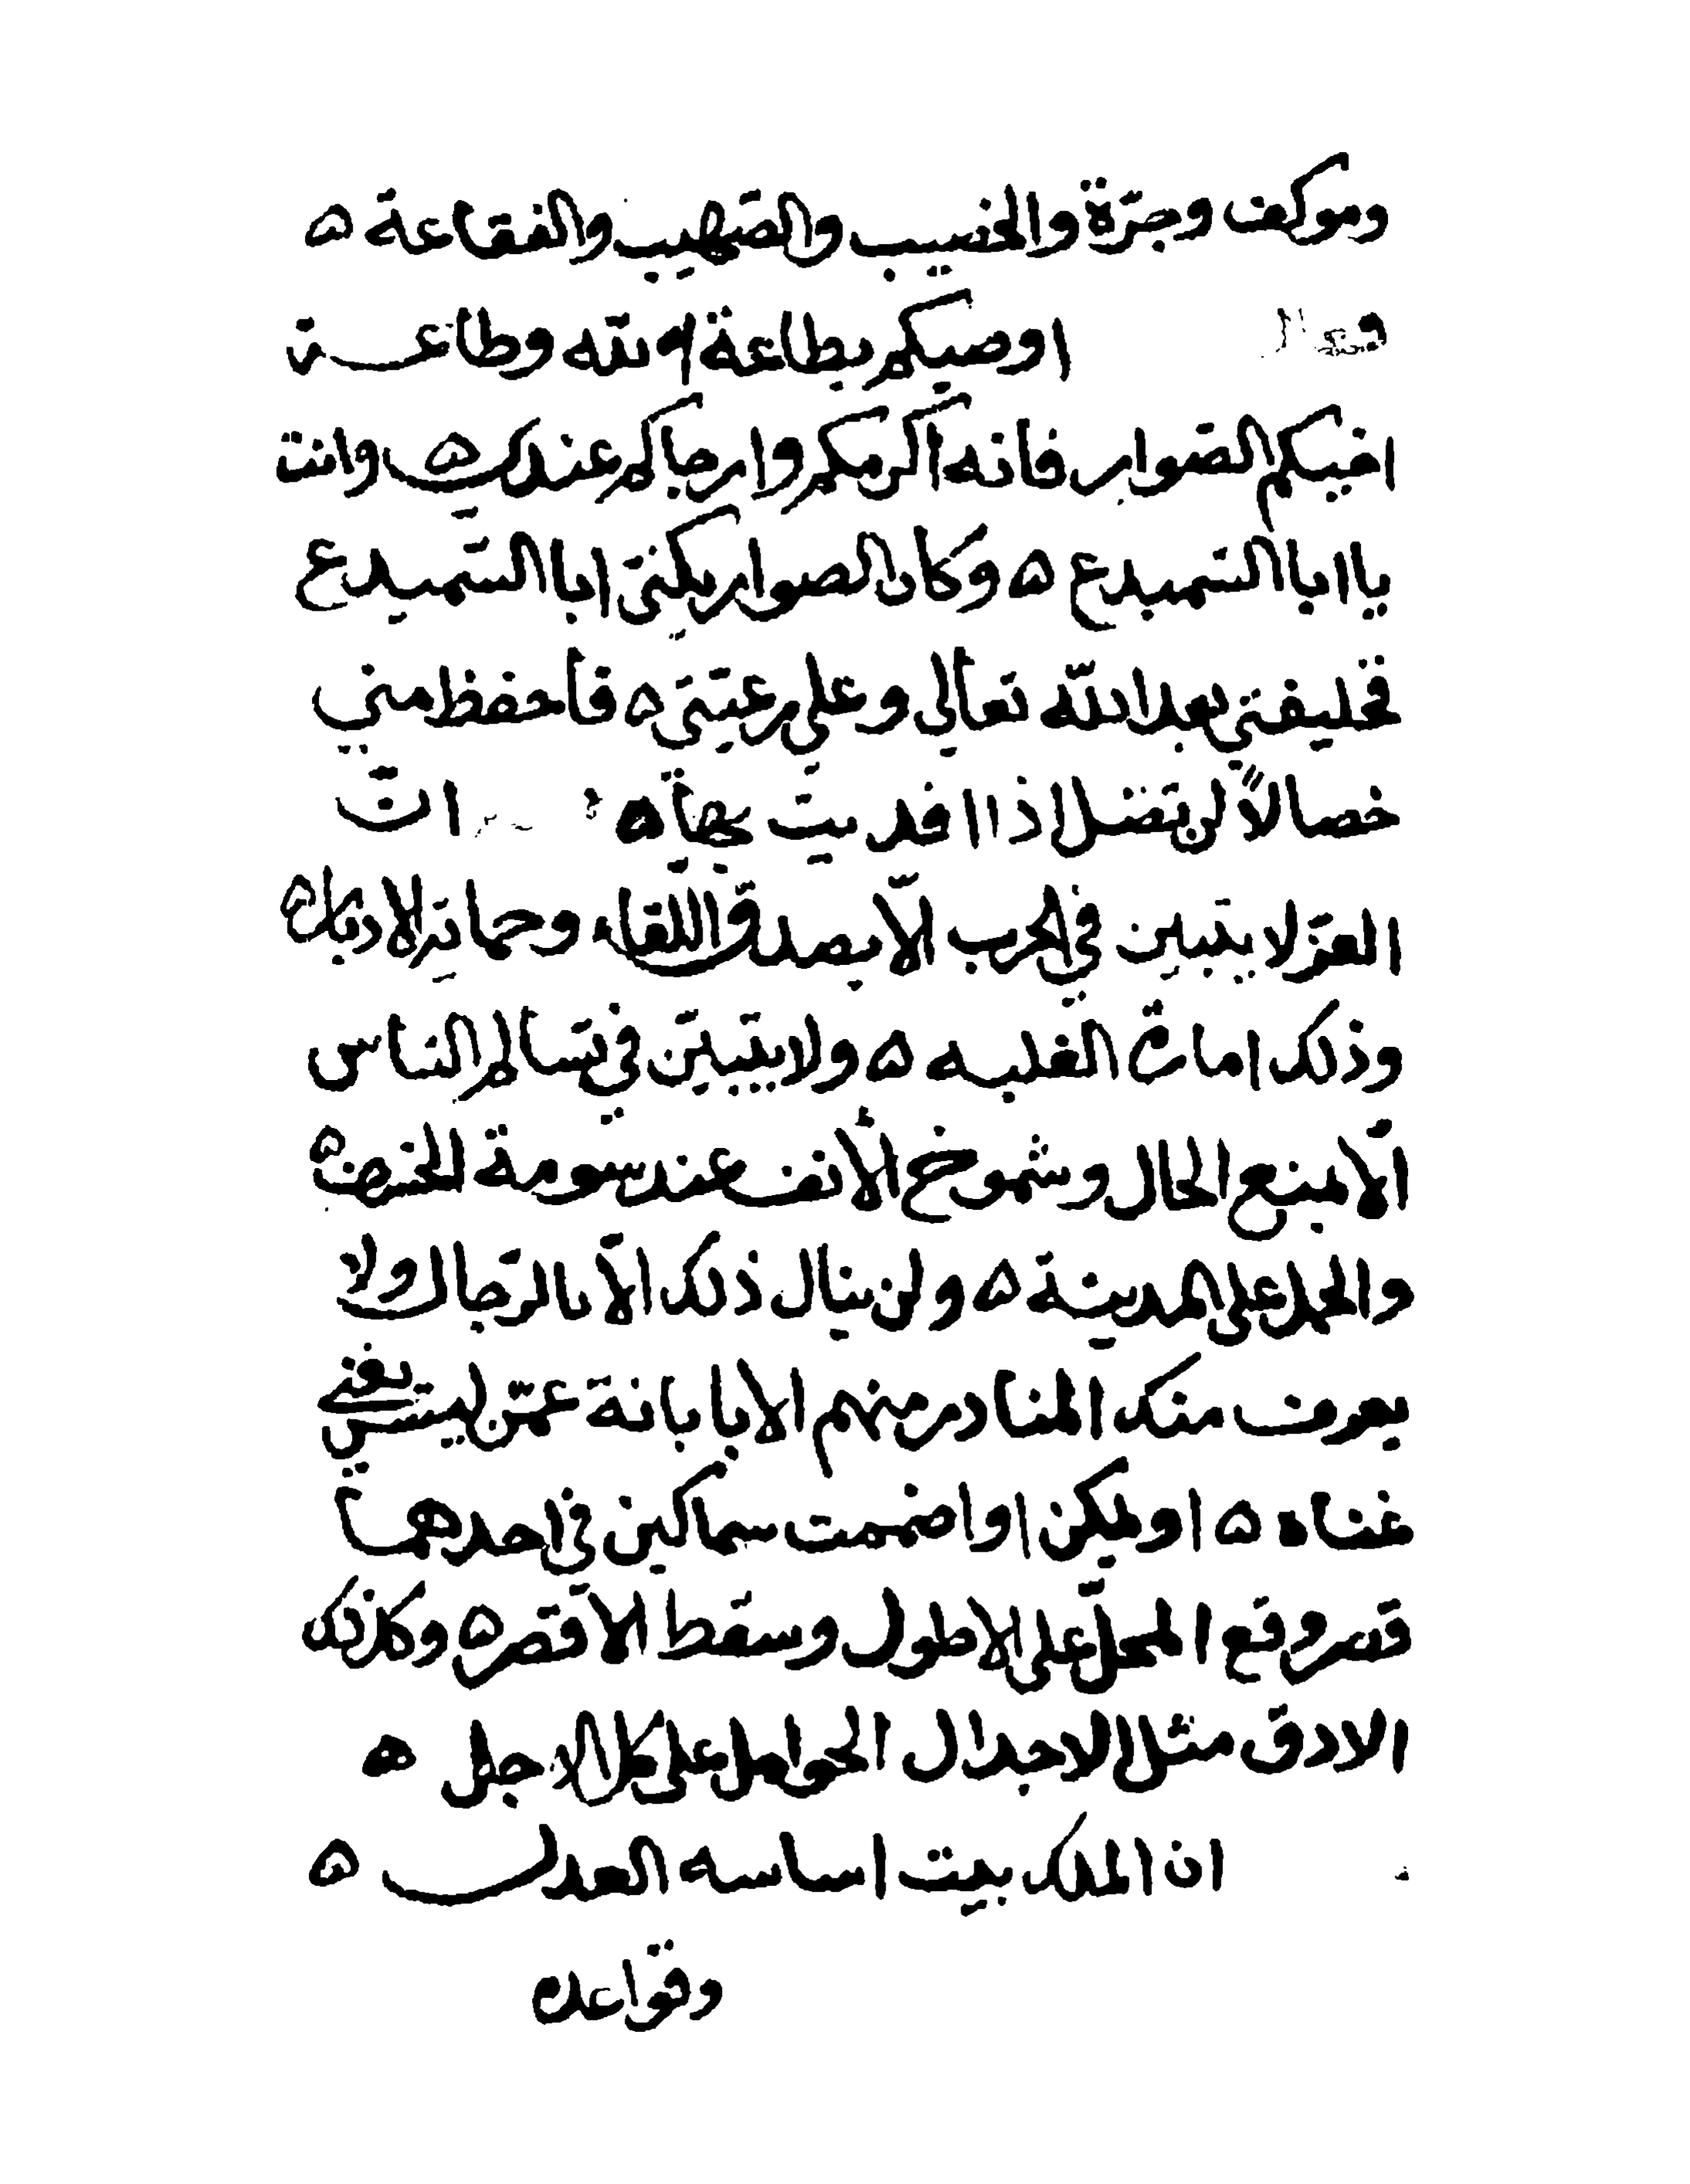 وموكف وجرّة والخضيب والصّهيب والفقاعة ه
اوصيكم بطاعة الله وطاعة
اخيكم الصّوار فانه اكرمكم وارجاكم عندي ه وانت
يا ابا السّميدع ه وكان الصوار يكنّى ابا السّميدع
فخليفتي بعد الله تعالي وعلي رعيّتي ه فاحفظ مني
خصالاً لن تضل اذا اقديت بها ه انّ
العزّ لا يتبين في الحرب الّا بصدق اللقاء وحماية الادبار ه
وذلك امارة الغلبه ه ولا يتبيّن في تسالم الناس
الّا بمنع الحال وشموخ الأنف عند سومة الخسف ه
والحمل على المدينة ه ولن ينال ذلك الّا بالرّجال ولا
يعرف منك المنادر منهم الا بابانة عمّن ليس يغني
غناه ه اولم يكن اوا ضممت سماكين في احدهما
قصر وقع المحلّ على الاطول وسقط الاقصر ه وكذلك
الادق مثل الاجدال الحوامل على كل الاجل ه
ان الملك بيت اساسه العدل ه
وقواعده